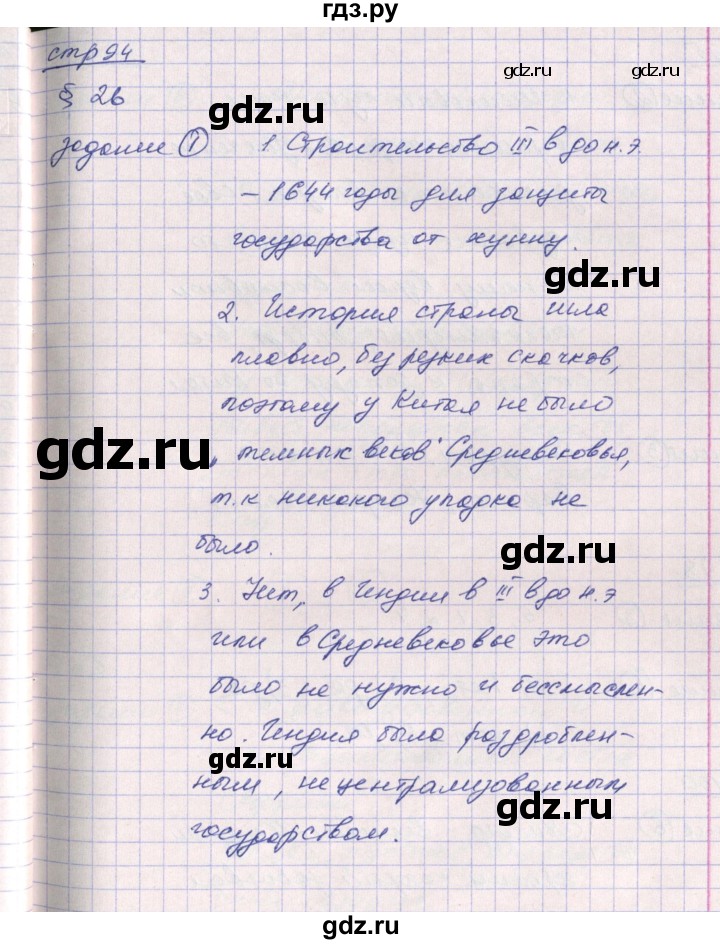 гдз.ру
стр 94
§ 26
задание ① 1. Строительство III в до н.э.
– 1644 годы для защиты
государства от хунну.
2. История страны шла
плавно, без резких скачков,
поэтому у Китая не было
„темных веков" Средневековья,
т.к никакого упадка не
было.
3. Нет, в Индии в III в до н.э
или в Средневековье это
было не нужно и бессмыслен-
но. Индия была раздроблен-
ным, не централизованным
государством.
gdz.ru
gdz.ru
gdz.ru
gdz.ru
gdz.ru
gdz.ru
gdz.ru
gdz.ru